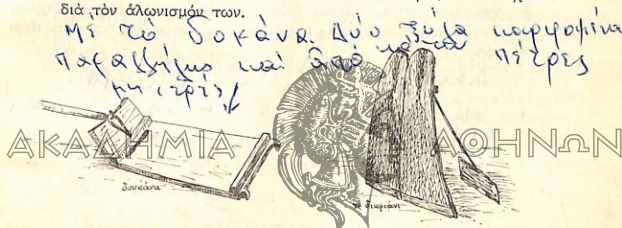 διὰ τὸν ἁλωνισμόν των.
Μὲ τὸ δοκάνα. Δύο ξύλα καρφομένα
παραλλήλως καὶ ἀπὸ κάτου πέτρες
ΑΚΑΔΗΜΙΑ ΑΘΗΝΩΝ
δουκάνα
τὸ δικριάνι